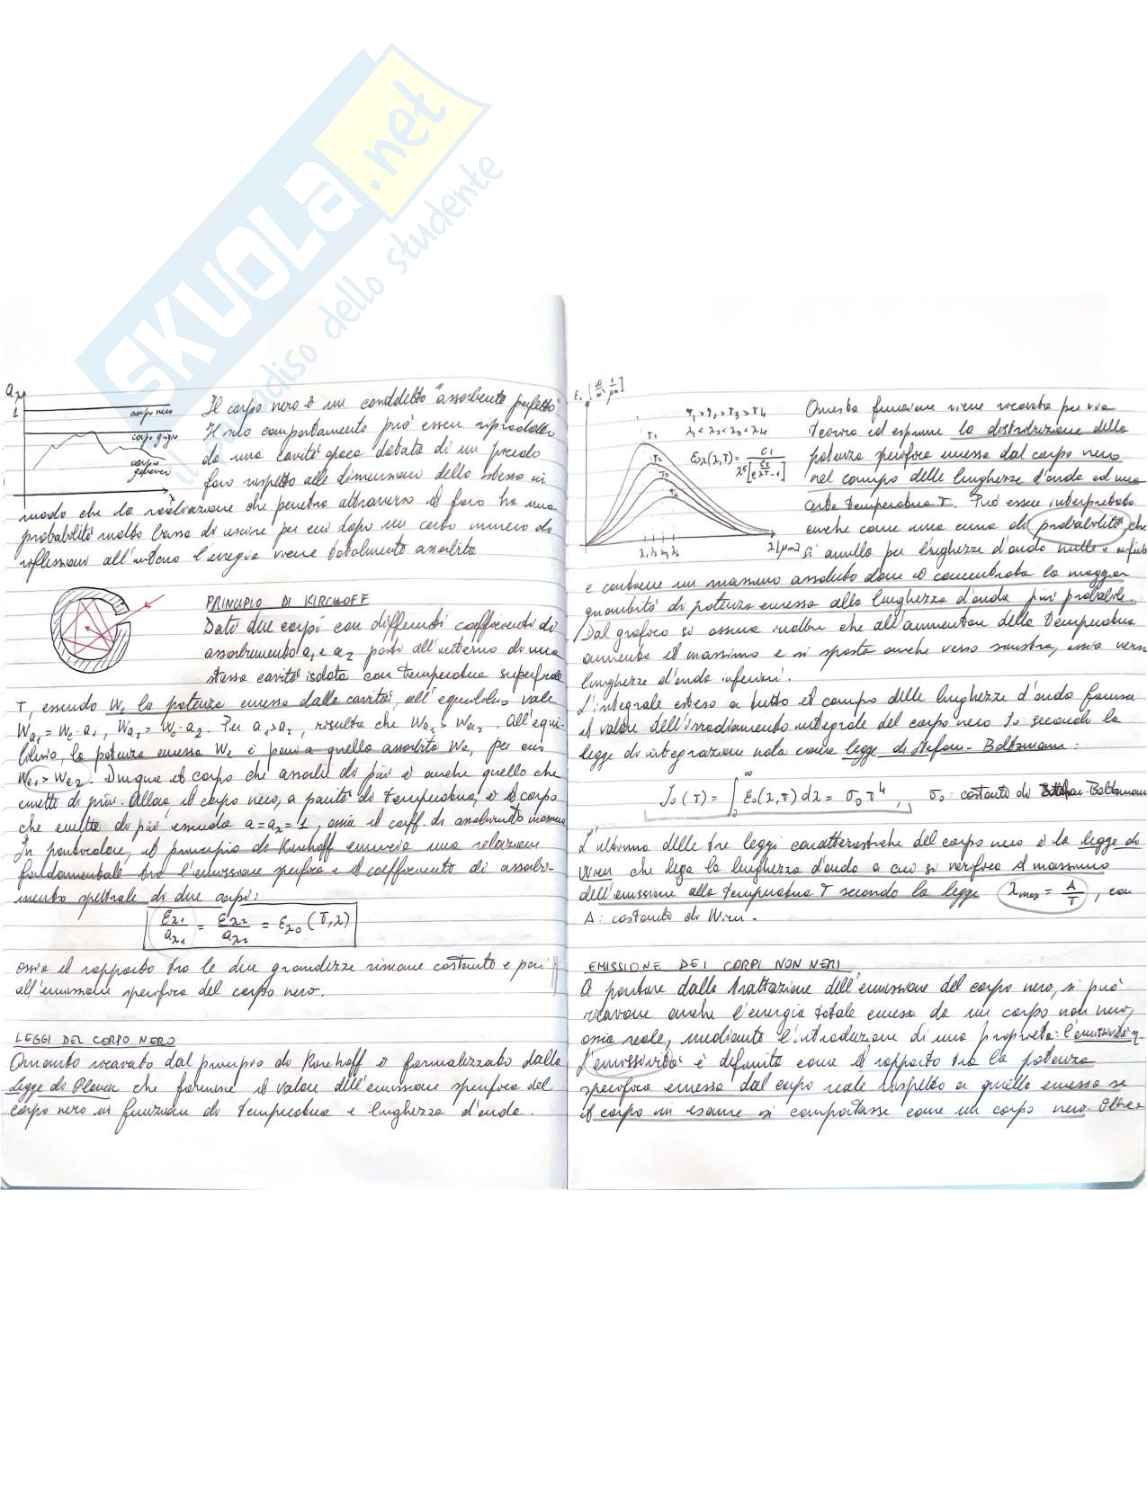 SKUOLA.net
paradiso dello studente
aλ
1
corpo nero
corpo grigio
corpo generico
λ
Il corpo nero è un cosiddetto "assorbente perfetto".
Il suo comportamento può essere riprodotto
da una cavità opaca dotata di un piccolo
foro rispetto alle dimensioni della stessa in
modo che la radiazione che penetra attraverso il foro ha una
probabilità molto bassa di uscire per cui dopo un certo numero di
riflessioni all'interno l'energia viene totalmente assorbita
PRINCIPIO DI KIRCHOFF
Dati due corpi con differenti coefficienti di
assorbimento a1 e a2 posti all'interno di una
stessa cavità isolata con temperatura superficiale
T, essendo We la potenza emessa dalla cavità, all'equilibrio vale
Wa1 = We·a1, Wa2 = We·a2. Per a1>a2, risulta che Wa1 > Wa2. All'equi-
librio, la potenza emessa We è pari a quella assorbita Wa, per cui
We1 > We2. Dunque il corpo che assorbe di più è anche quello che
emette di più. Allora il corpo nero, a parità di temperatura, è il corpo
che emette di più essendo a=aλ=1, ossia il coeff. di assorbimento massimo
In particolare, il principio di Kirchoff enuncia una relazione
fondamentale tra l'emissione specifica e il coefficiente di assorbi-
mento spettrale di due corpi:
Eλ1/aλ1 = Eλ2/aλ2 = Eλ0 (T,λ)
ossia il rapporto tra le due grandezze rimane costante e pari
all'emissione specifica del corpo nero.
LEGGI DEL CORPO NERO
Quanto ricavato dal principio di Kirchoff è formalizzato dalla
legge di Planck che fornisce il valore dell'emissione specifica del
corpo nero in funzione di temperatura e lunghezza d'onda.
T1 > T2 > T3 > T4
λ1 < λ2 < λ3 < λ4
E0λ(λ,T) = C1/λ⁵[e^(C2/λT)-1]
T1
T2
T3
T4
λ1 λ2 λ3 λ4
λ[μm]
Questa funzione viene ricavata per via
teorica ed esprime la distribuzione della
potenza specifica emessa dal corpo nero
nel campo delle lunghezze d'onda ad una
certa temperatura T. Può essere interpretata
anche come una curva di probabilità che
si annulla per lunghezze d'onda nulle e infinite
e contiene un massimo assoluto dove è concentrata la maggior
quantità di potenza emessa alla lunghezza d'onda più probabile.
Dal grafico si osserva inoltre che all'aumentare della temperatura
aumenta il massimo e si sposta anche verso sinistra, ossia verso
lunghezze d'onda inferiori.
L'integrale esteso a tutto il campo delle lunghezze d'onda fornisce
il valore dell'irradiamento integrale del corpo nero J0 secondo la
legge di integrazione nota come legge di Stefan-Boltzmann:
J0(T) = ∫0^∞ E0(λ,T) dλ = σ0T⁴, σ0: costante di Boltzmann
L'ultima delle tre leggi caratteristiche del corpo nero è la legge di
Wien che lega la lunghezza d'onda a cui si verifica il massimo
dell'emissione alla temperatura T secondo la legge λmax = A/T, con
A: costante di Wien.
EMISSIONE DEI CORPI NON NERI
A partire dalla trattazione dell'emissione del corpo nero, si può
ricavare anche l'energia totale emessa da un corpo non nero,
ossia reale, mediante l'introduzione di una proprietà: l'emissività.
L'emissività è definita come il rapporto tra la potenza
specifica emessa dal corpo reale rispetto a quella emessa se
il corpo in esame si comportasse come un corpo nero. Oltre